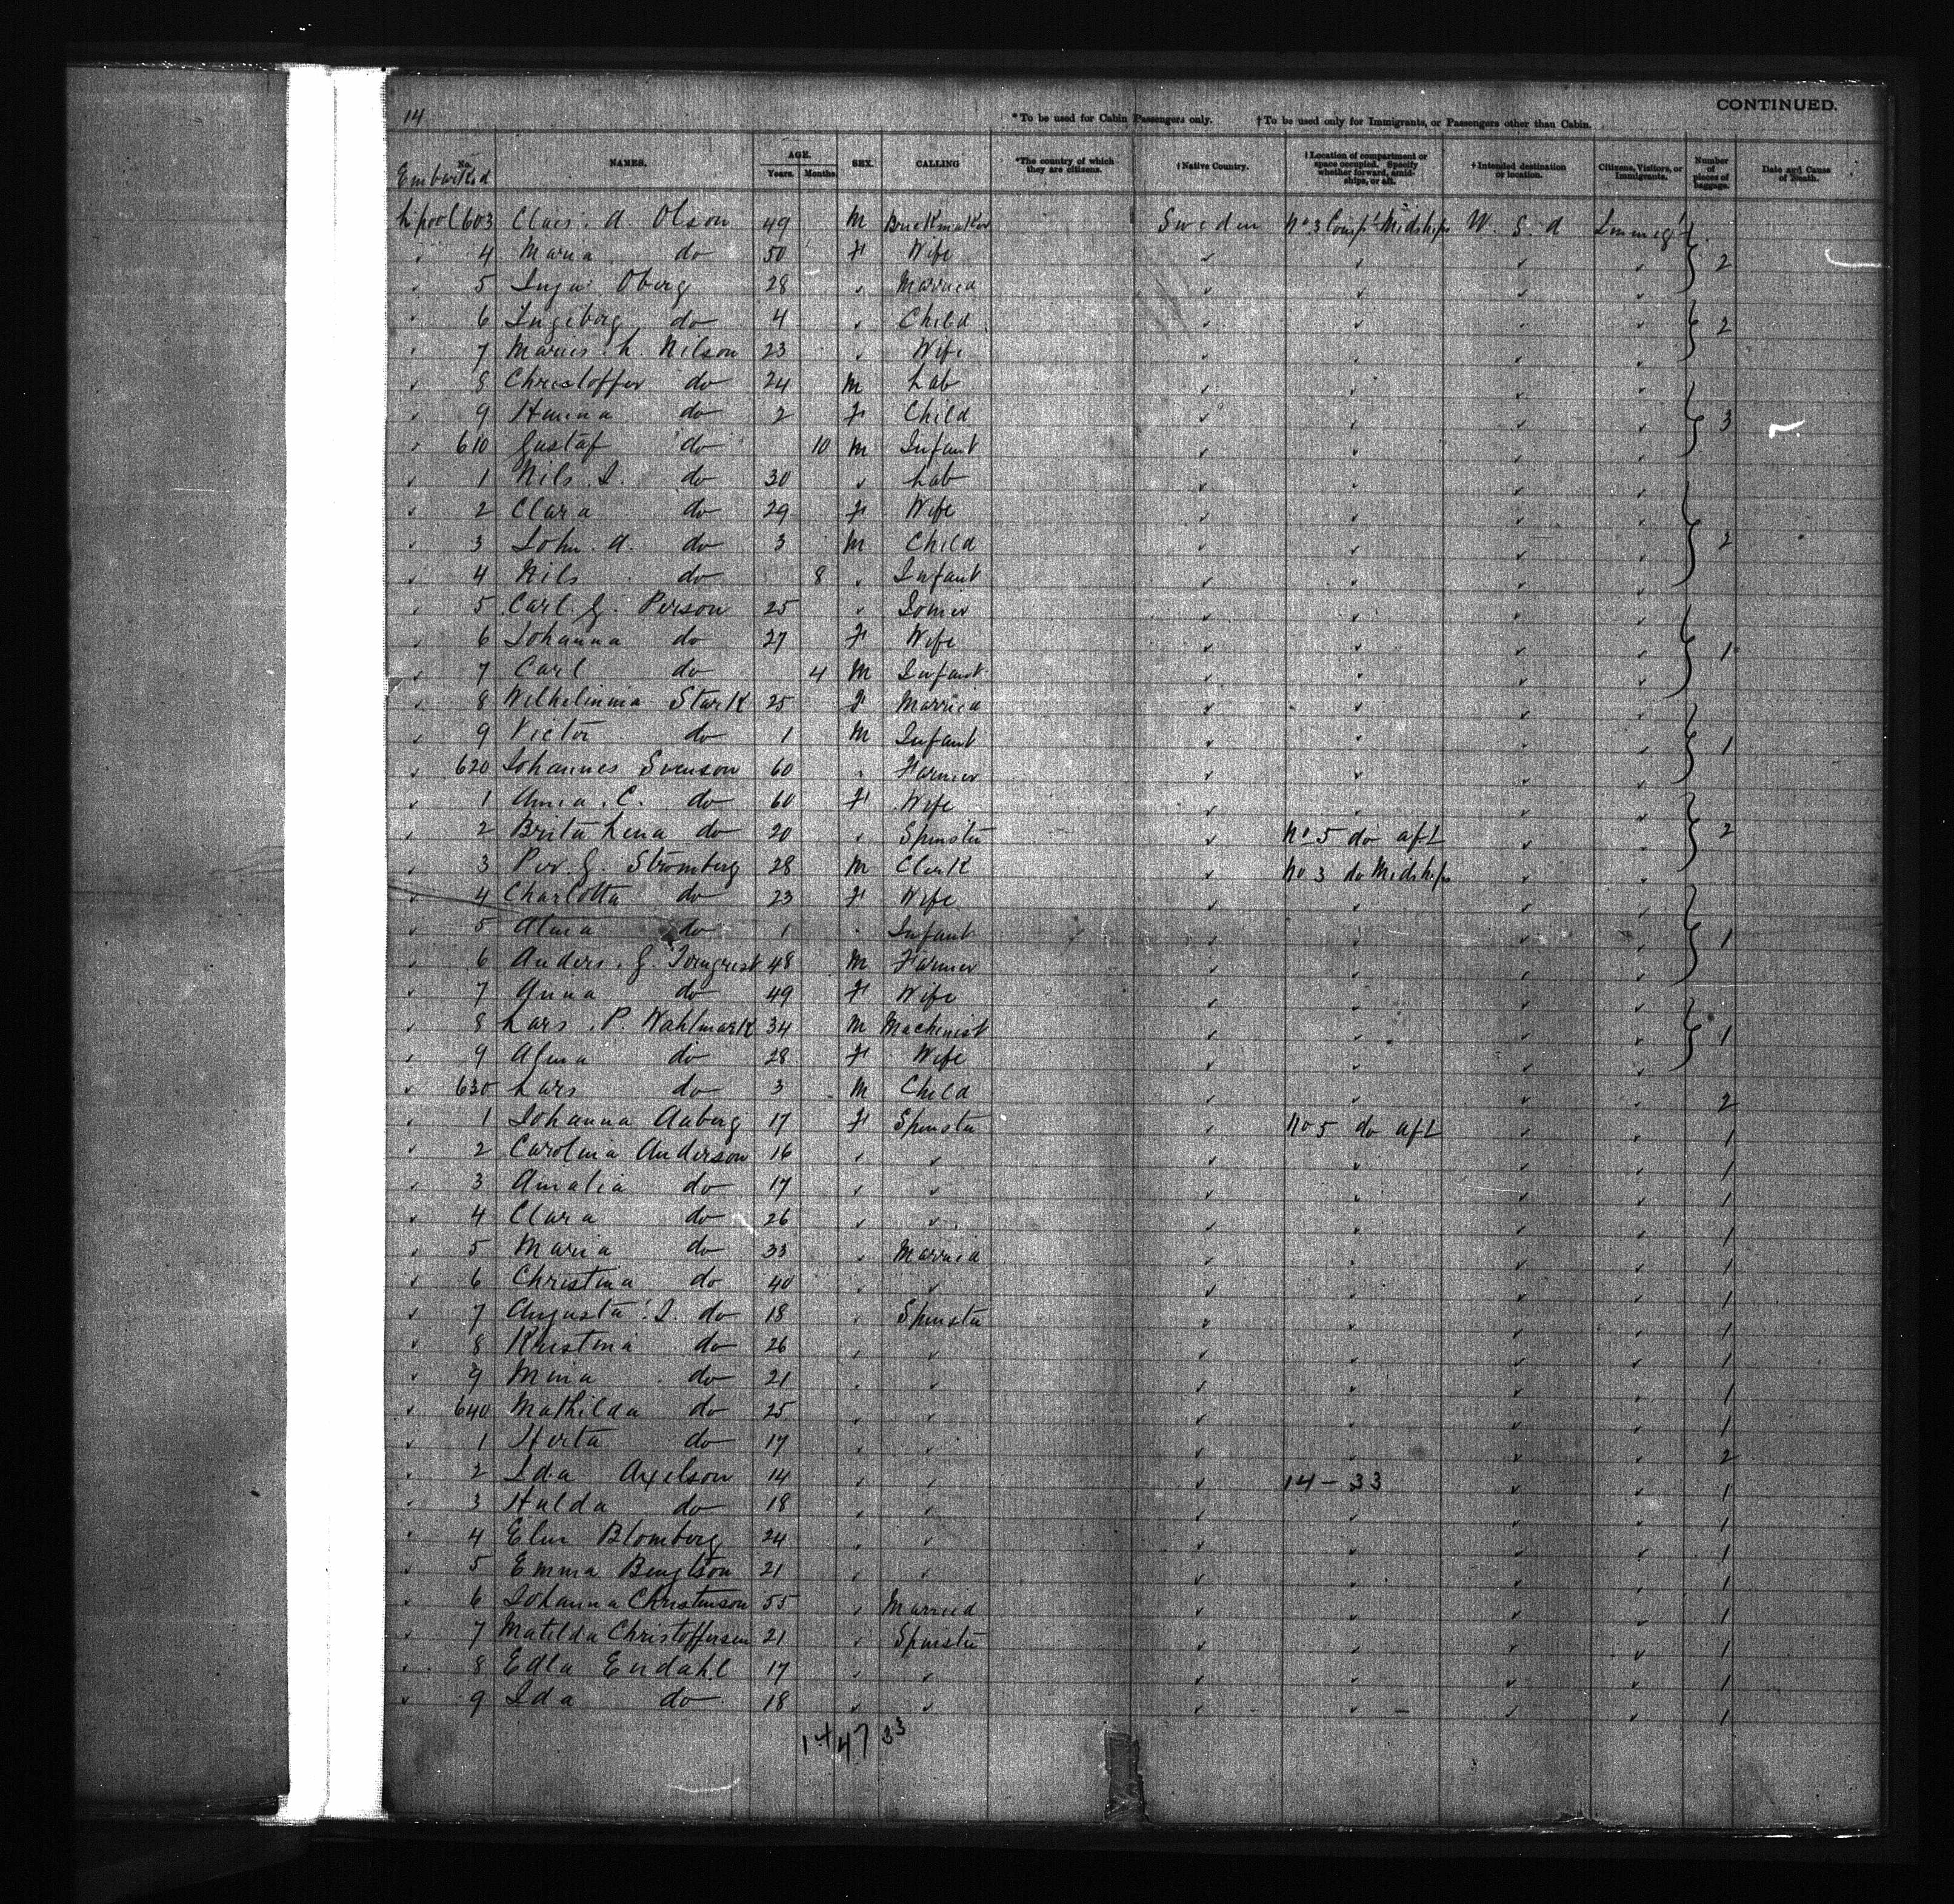 CONTINUED.
14 *To be used for Cabin Passengers only. †To be used only for Immigrants, or Passengers other than Cabin.
Embarked No. NAMES. AGE. Years. Months. SEX. CALLING *The country of which they are citizens. †Native Country. †Location of compartment or space occupied. Specify whether forward, amidships, or aft. †Intended destination or location. Citizens, Visitors, or Immigrants. Number of pieces of baggage. Date and Cause of Death.
L'pool 603 Claes. A. Olson 49 M Brickmaker Sweden No. 3 Comp't Midships W. S. A Immig't
✓ 4 Maria do 50 F Wife ✓ ✓ ✓ ✓ 2
✓ 5 Inga Oberg 28 ✓ Married ✓ ✓ ✓ ✓
✓ 6 Ingeborg do 4 ✓ Child ✓ ✓ ✓ ✓ 2
✓ 7 L. Nilson 23 ✓ Wife ✓ ✓ ✓ ✓
✓ 8 Christoffer do 24 M Lab ✓ ✓ ✓ ✓
✓ 9 Hanna do 2 F Child ✓ ✓ ✓ ✓ 3
✓ 610 Gustaf do 10 M Infant ✓ ✓ ✓ ✓
✓ 1 Nils. I. do 30 ✓ Lab ✓ ✓ ✓ ✓
✓ 2 Clara do 29 F Wife ✓ ✓ ✓ ✓
✓ 3 John. A. do 3 M Child ✓ ✓ ✓ ✓ 2
✓ 4 Nils do 8 ✓ Infant ✓ ✓ ✓ ✓
✓ 5 Carl. G. Person 25 ✓ ✓ ✓ ✓ ✓
✓ 6 Johanna do 27 F Wife ✓ ✓ ✓ ✓ 1
✓ 7 Carl do 4 M Infant ✓ ✓ ✓ ✓
✓ 8 Wilhelmina Stark 25 F Married ✓ ✓ ✓ ✓
✓ 9 Victor do 1 M Infant ✓ ✓ ✓ ✓ 1
✓ 620 Johannes Svenson 60 ✓ Farmer ✓ ✓ ✓ ✓
✓ 1 Anna. C. do 60 F Wife ✓ ✓ ✓ ✓
✓ 2 Brita Lena do 20 ✓ Spinster ✓ No 5 do aft ✓ ✓ 2
✓ 3 Per. G. Strömberg 28 M Clerk ✓ No 3 do Midships ✓ ✓
✓ 4 Charlotta do 23 F Wife ✓ ✓ ✓ ✓
✓ 5 Alma do 1 ✓ Infant ✓ ✓ ✓ ✓ 1
✓ 6 Anders. G. 48 M Farmer ✓ ✓ ✓ ✓
✓ 7 Anna do 49 F Wife ✓ ✓ ✓ ✓
✓ 8 Lars. P. Wahlmark 34 M Machinist ✓ ✓ ✓ ✓ 1
✓ 9 Alma do 28 F Wife ✓ ✓ ✓ ✓
✓ 630 Lars do 3 M Child ✓ ✓ ✓ ✓ 2
✓ 1 Johanna Aaberg 17 F Spinster ✓ No 5 do aft ✓ ✓ 1
✓ 2 Carolina Anderson 16 ✓ ✓ ✓ ✓ ✓ ✓ 1
✓ 3 Amalia do 17 ✓ ✓ ✓ ✓ ✓ ✓ 1
✓ 4 Clara do 26 ✓ ✓ ✓ ✓ ✓ ✓ 1
✓ 5 Maria do 33 ✓ Married ✓ ✓ ✓ ✓ 1
✓ 6 Christina do 40 ✓ ✓ ✓ ✓ ✓ ✓ 1
✓ 7 Augusta. I. do 18 ✓ Spinster ✓ ✓ ✓ ✓ 1
✓ 8 Kristina do 26 ✓ ✓ ✓ ✓ ✓ ✓ 1
✓ 9 Mina do 21 ✓ ✓ ✓ ✓ ✓ ✓ 1
✓ 640 Mathilda do 25 ✓ ✓ ✓ ✓ ✓ ✓ 1
✓ 1 Herta do 17 ✓ ✓ ✓ ✓ ✓ ✓ 2
✓ 2 Ida Axelson 14 ✓ ✓ ✓ 14-33 ✓ ✓ 1
✓ 3 Hulda do 18 ✓ ✓ ✓ ✓ ✓ ✓ 1
✓ 4 Elin Blomberg 24 ✓ ✓ ✓ ✓ ✓ ✓ 1
✓ 5 Emma Bengtson 21 ✓ ✓ ✓ ✓ ✓ ✓ 1
✓ 6 Johanna Christenson 55 ✓ Married ✓ ✓ ✓ ✓ 1
✓ 7 Matilda Christofferson 21 ✓ Spinster ✓ ✓ ✓ ✓ 1
✓ 8 Edla Endahl 17 ✓ ✓ ✓ ✓ ✓ ✓ 1
✓ 9 Ida do 18 ✓ ✓ ✓ ✓ ✓ ✓ 1
14 47 33